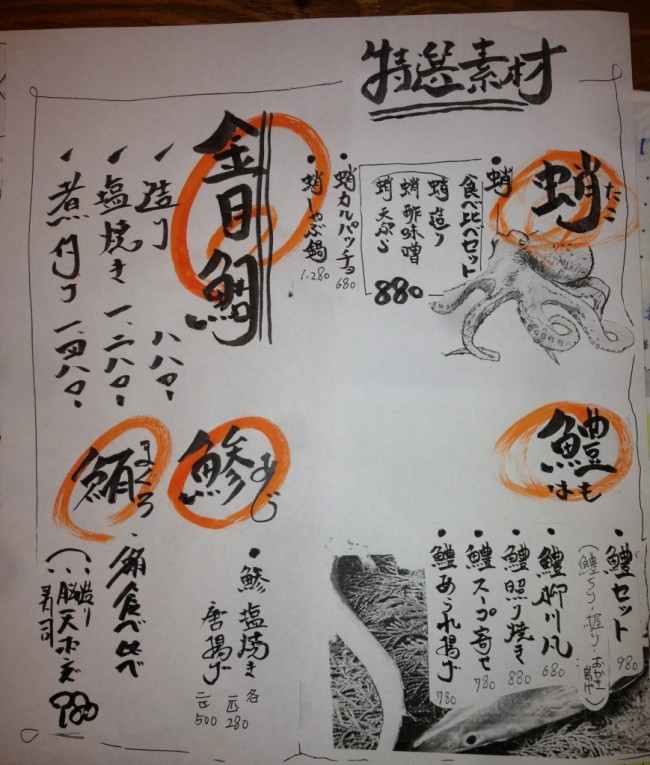 特選素材
蛸 たこ
・蛸
食べ比べセット
蛸造り
蛸酢味噌
蛸天ぷら
880
・蛸カルパッチョ 680
・蛸しゃぶ鍋 1,280
金目鯛
造り 八八〇
塩焼き 一、二八〇
煮付け 一、四八〇
鱧 はも
・鱧セット 980
・鱧柳川風 680
・鱧照り焼き 880
・鱧スープ寄せ 780
・鱧あられ揚げ 780
鯵 あじ
・鯵塩焼き
唐揚げ
各一匹 280
二匹 500
鮪 まぐろ
・鮪食べ比べ
造り
寿司
980